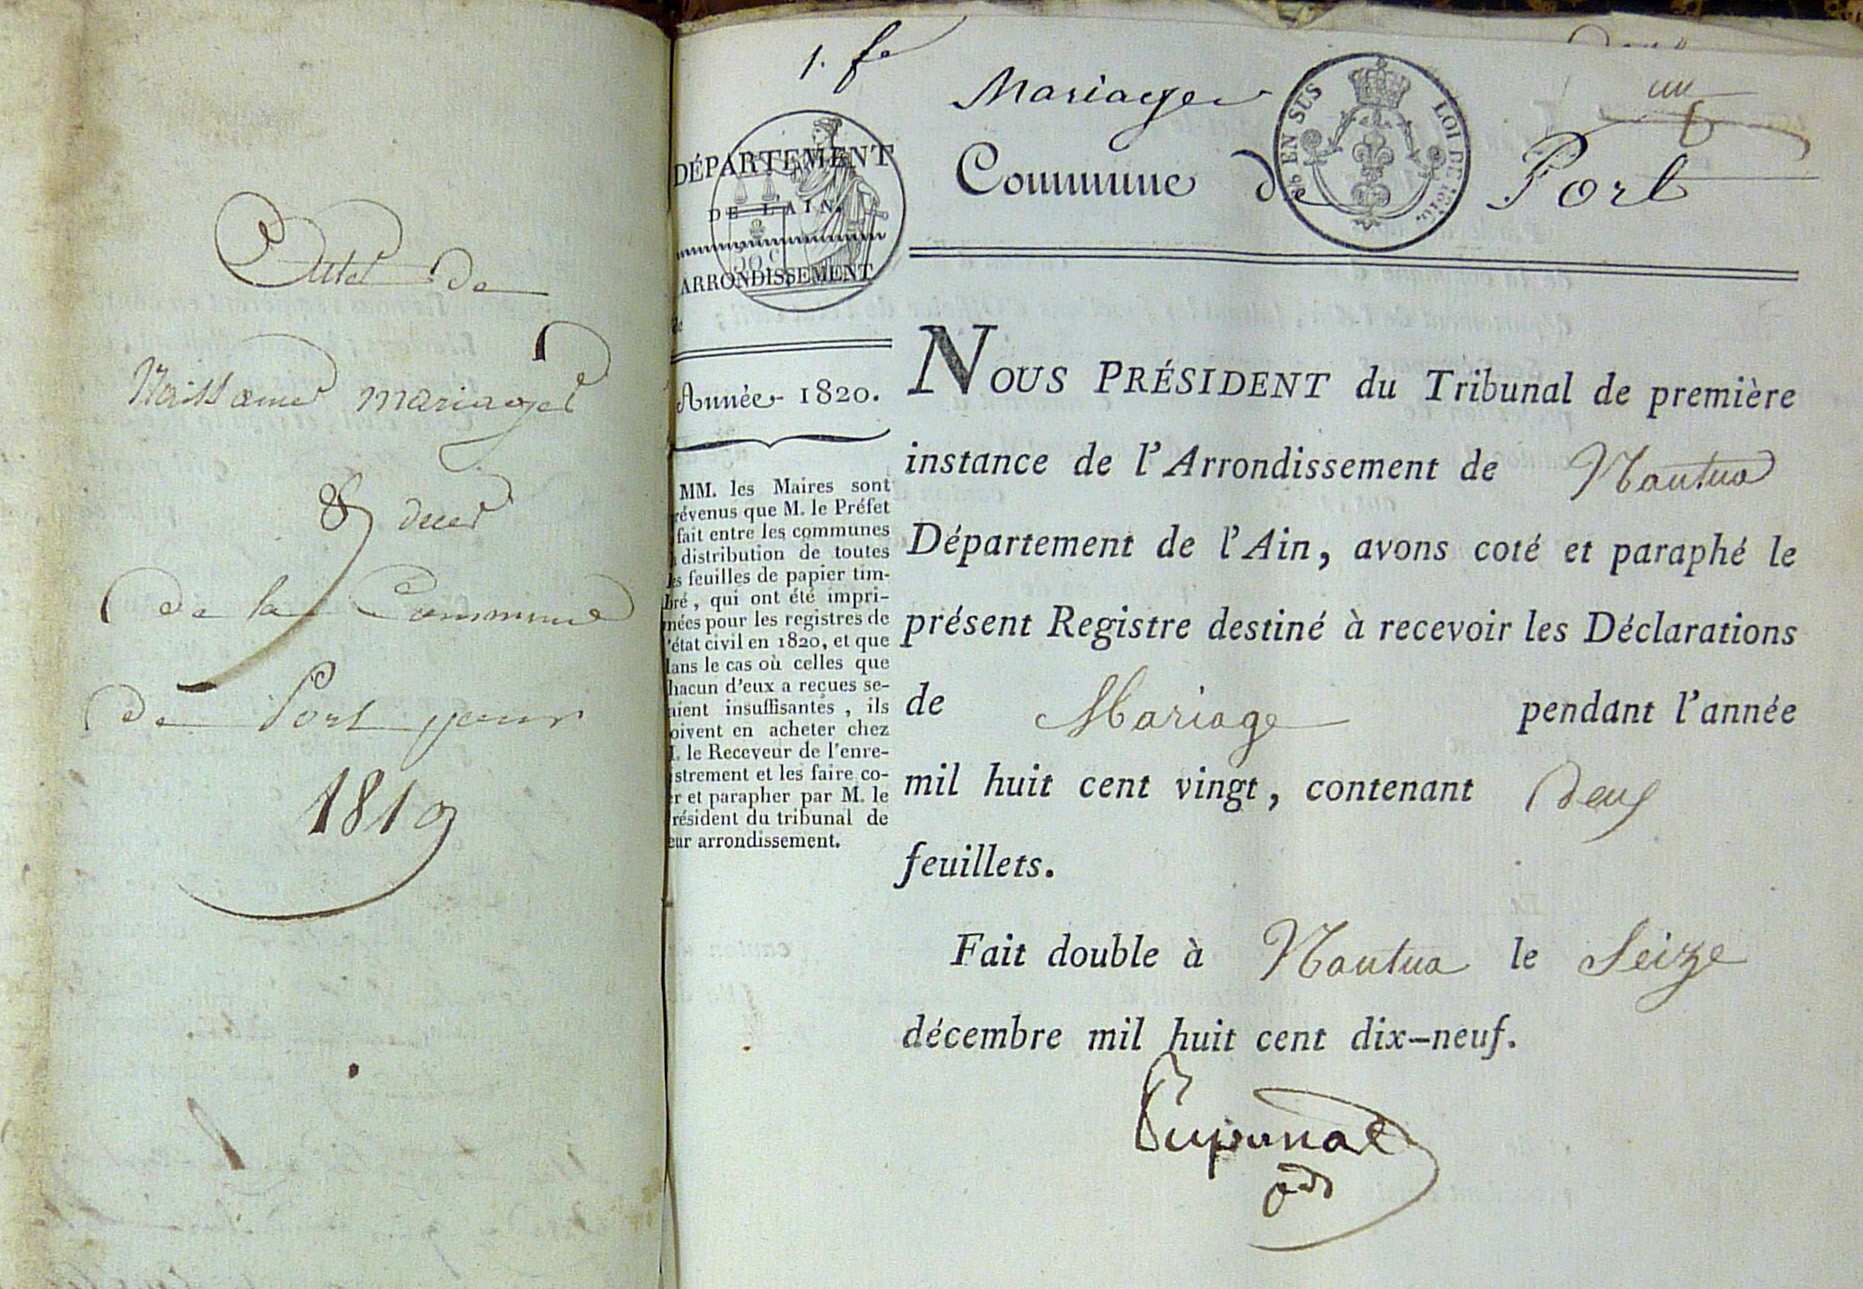 Actes de
Naissances mariages
& deces
de la Commune
de Port pour
1819
1. fe
Mariages
DÉPARTEMENT
DE L'AIN.
ARRONDISSEMENT
de
Commune de Port
EN SUS
LOI DE 1816.
un
Année 1820.
MM. les Maires sont
révenus que M. le Préfet
fait entre les communes
distribution de toutes
es feuilles de papier tim-
bré, qui ont été impri-
mées pour les registres de
l'état civil en 1820, et que
dans le cas où celles que
chacun d'eux a reçues se-
aient insuffisantes, ils
oivent en acheter chez
M. le Receveur de l'enre-
istrement et les faire co-
er et parapher par M. le
résident du tribunal de
eur arrondissement.
NOUS PRÉSIDENT du Tribunal de première
instance de l'Arrondissement de Nantua
Département de l'Ain, avons coté et paraphé le
présent Registre destiné à recevoir les Déclarations
de Mariage pendant l'année
mil huit cent vingt, contenant deux
feuillets.
Fait double à Nantua le Seize
décembre mil huit cent dix-neuf.